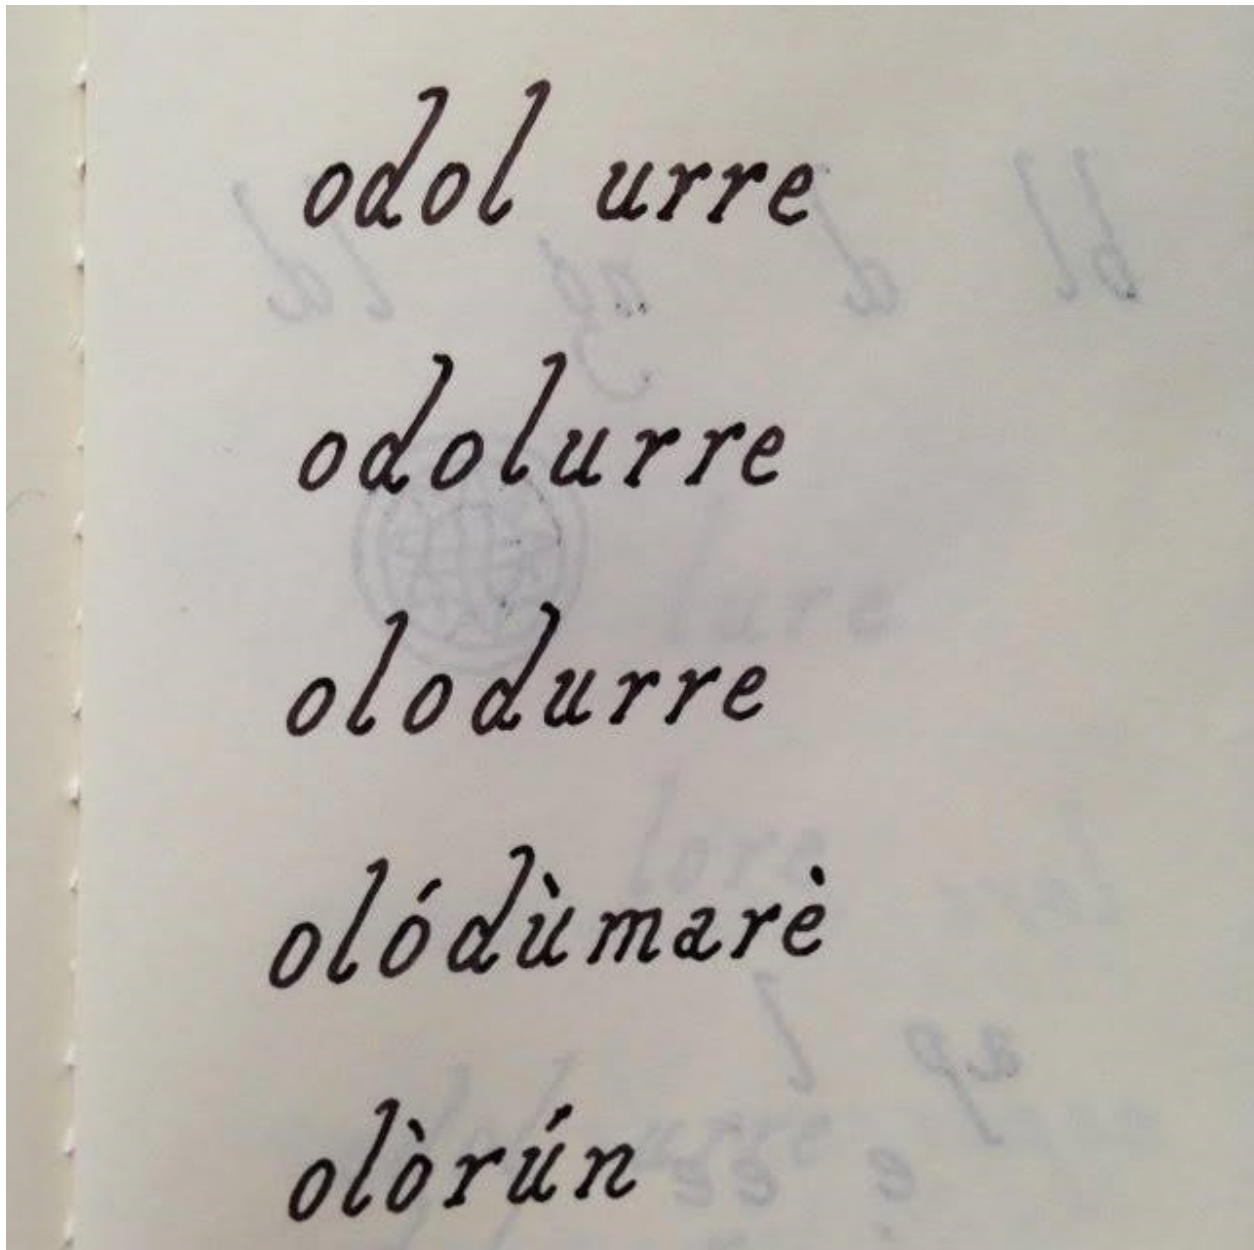 odol urre
odolurre
olodurre
olódùmarè
olòrún